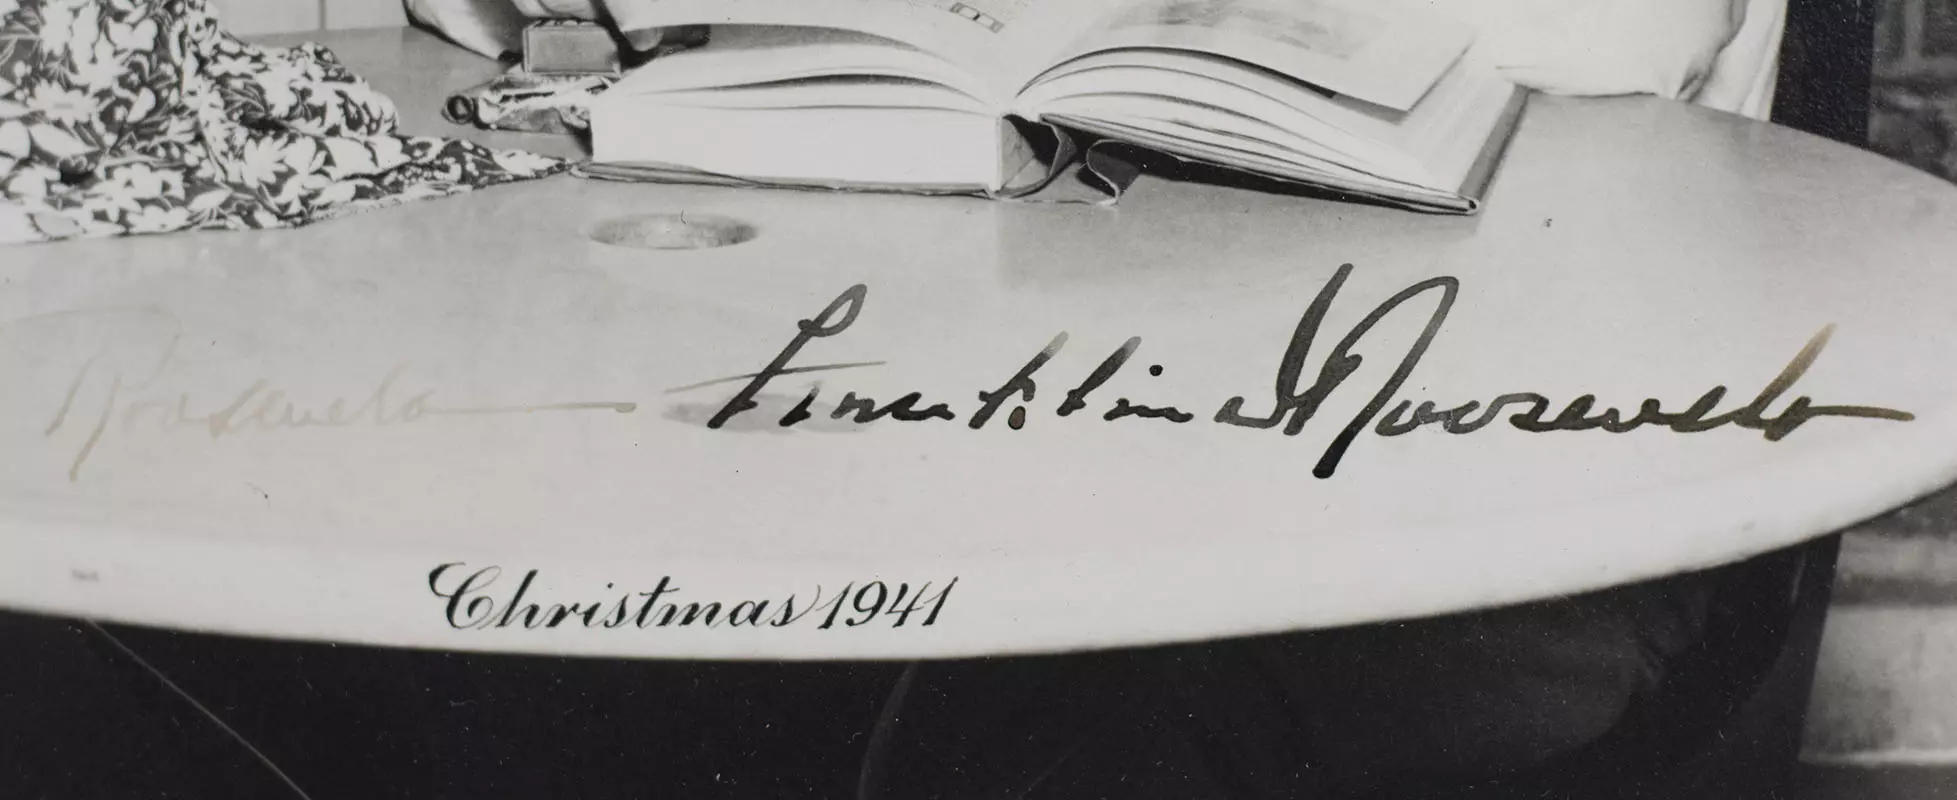 Roosevelt Franklin D Roosevelt
Christmas 1941